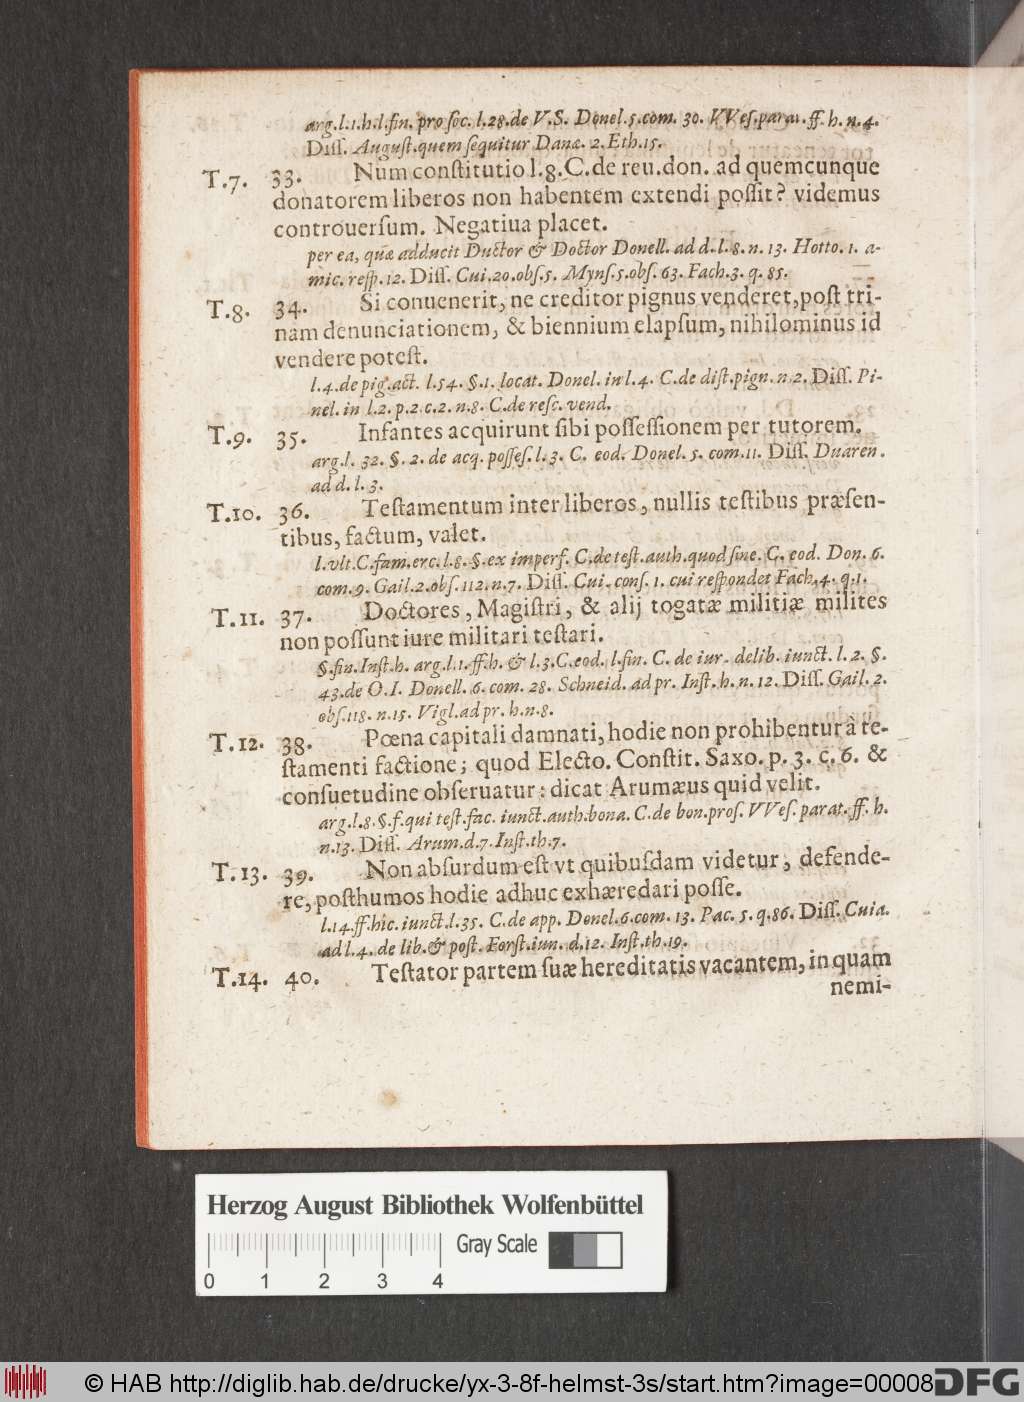 arg.l.1.h.l.fin. pro soc. l.28.de V.S. Donel.5.com. 30. VVes.parat. ff. h. n. 4.
Diſſ. Auguſt.quem ſequitur Danæ. 2. Eth.15.
T.7. 33. Num conſtitutio l.8.C.de reu.don. ad quemcunque
donatorem liberos non habentem extendi poſſit? videmus
controuerſum. Negatiua placet.
per ea, quæ adducit Ductor & Doctor Donell. ad d. l. 8. n. 13. Hotto. 1. a-
mic. reſp. 12. Diſſ. Cui.20.obſ.5. Mynſ.5.obſ. 63. Fach.3. q. 85.
T.8. 34. Si conuenerit, ne creditor pignus venderet, poſt tri-
nam denunciationem, & biennium elapſum, nihilominus id
vendere poteſt.
l.4.de pig.act. l.54. §.1. locat. Donel. in l.4. C.de diſt.pign. n.2. Diſſ. Pi-
nel. in l.2. p.2.c.2. n.8. C.de reſc. vend.
T.9. 35. Infantes acquirunt ſibi poſſeſſionem per tutorem.
arg.l. 32. §. 2. de acq. poſſeſ. l. 3. C. eod. Donel. 5. com.11. Diſſ. Duaren.
ad d. l. 3.
T.10. 36. Teſtamentum inter liberos, nullis teſtibus præſen-
tibus, factum, valet.
l.vlt.C.fam.erc.l.8.§.ex imperf. C.de teſt.auth.quod ſine. C. eod. Don. 6.
com. 9. Gail.2.obſ.112.n.7. Diſſ. Cui. conſ. 1. cui reſpondet Fach.4. q.1.
T.11. 37. Doctores, Magiſtri, & alij togatæ militiæ milites
non poſſunt iure militari teſtari.
§.fin.Inſt.h. arg.l.1.ff.h. & l.3.C.eod. l.fin. C. de iur. delib. iunct. l. 2. §.
43.de O.I. Donell. 6. com. 28. Schneid. ad pr. Inſt. h. n. 12. Diſſ. Gail. 2.
obſ.118. n.15. Vigl.ad pr. h.n.8.
T.12. 38. Pœna capitali damnati, hodie non prohibentur à te-
ſtamenti factione; quod Electo. Conſtit. Saxo. p. 3. c. 6. &
conſuetudine obſeruatur: dicat Arumæus quid velit.
arg.l.8.§.f.qui teſt.fac. iunct.auth.bona. C.de bon.proſ. VVeſ. parat. ff. h.
n.13. Diſſ. Arum.d.7. Inſt.th.7.
T.13. 39. Non abſurdum eſt vt quibuſdam videtur, defende-
re, poſthumos hodie adhuc exhæredari poſſe.
l.14.ff.hic. iunct.l.35. C.de app. Donel.6.com. 13. Pac. 5. q.86. Diſſ. Cuia.
ad l. 4. de lib.& poſt. Forſt.iun. d.12. Inſt.th.19.
T.14. 40. Teſtator partem ſuæ hereditatis vacantem, in quam
nemi-
Herzog August Bibliothek Wolfenbüttel
Gray Scale
0 1 2 3 4
© HAB http://diglib.hab.de/drucke/yx-3-8f-helmst-3s/start.htm?image=00008
DFG